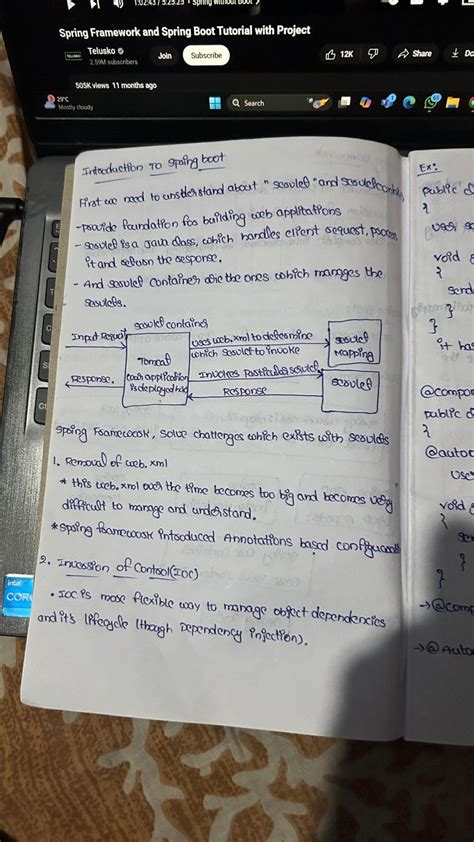 1:02:43 / 5:23:25 • Spring without Boot >
Spring Framework and Spring Boot Tutorial with Project
Telusko
2.59M subscribers
Join
Subscribe
12K
Share
505K views 11 months ago
29°C
Mostly cloudy
Search
Introduction To Spring boot
First we need to understand about "servlet" and
- provide foundation for building web applitations
- servlet is a java class, which handles client request, process
it and return the response.
- And servlet Container are the ones which manages the
servlets.
servlet container
Input
Response.
Tomcat
(our application
is deployed here)
uses web.xml to determine
which servlet to invoke
servlet
Mapping
Invokes Particular servlet
Response
servlet
Spring Framework, solve challenges which exists with servlets
1. Removal of web.xml
* this web.xml over the time becomes too big and becomes very
difficult to manage and understand.
* Spring framework introduced Annotations based
2. Inversion of Control(IOC)
• IOC is more flexible way to manage object dependencies
and it's lifecycle (though Dependency injection).
intel
CORE
Ex:
public
{
void
{
send
}
}
it has
public
{
void
{
}
}